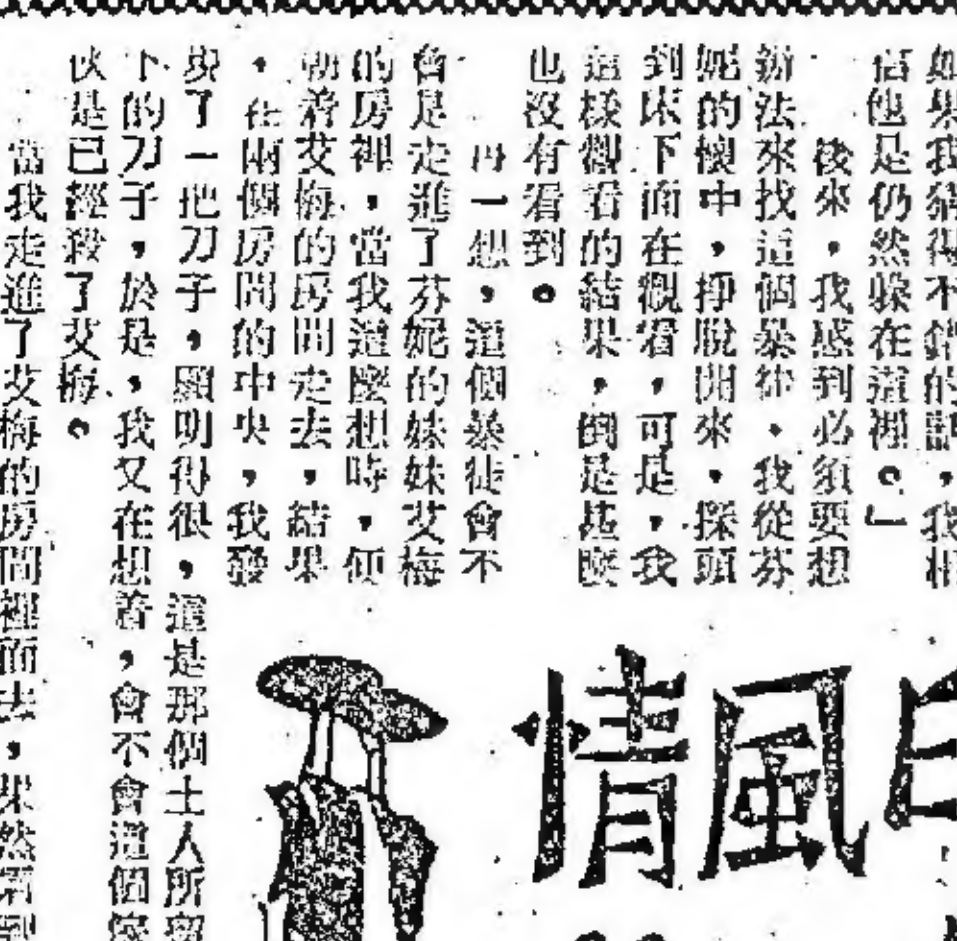 如果我猜得不錯的話，我相
信他是仍然躲在這裡。」
後來，我感到必須要想
辦法來找這個暴徒，我從芬
妮的懷中，掙脫開來，探頭
到床下面在觀看，可是，我
這樣觀看的結果，倒是甚麼
也沒有看到。
再一想，這個暴徒會不
會是走進了芬妮的妹妹艾梅
的房裡，當我這麼想時，便
朝着艾梅的房間走去，結果
，在兩個房間的中央，我發
現了一把刀子，顯明得很，這是那個土人所
下的刀子，於是，我又在想着，會不會這個
伙是已經殺了艾梅。
當我走進了艾梅的房間裡面去，果然看到
風情